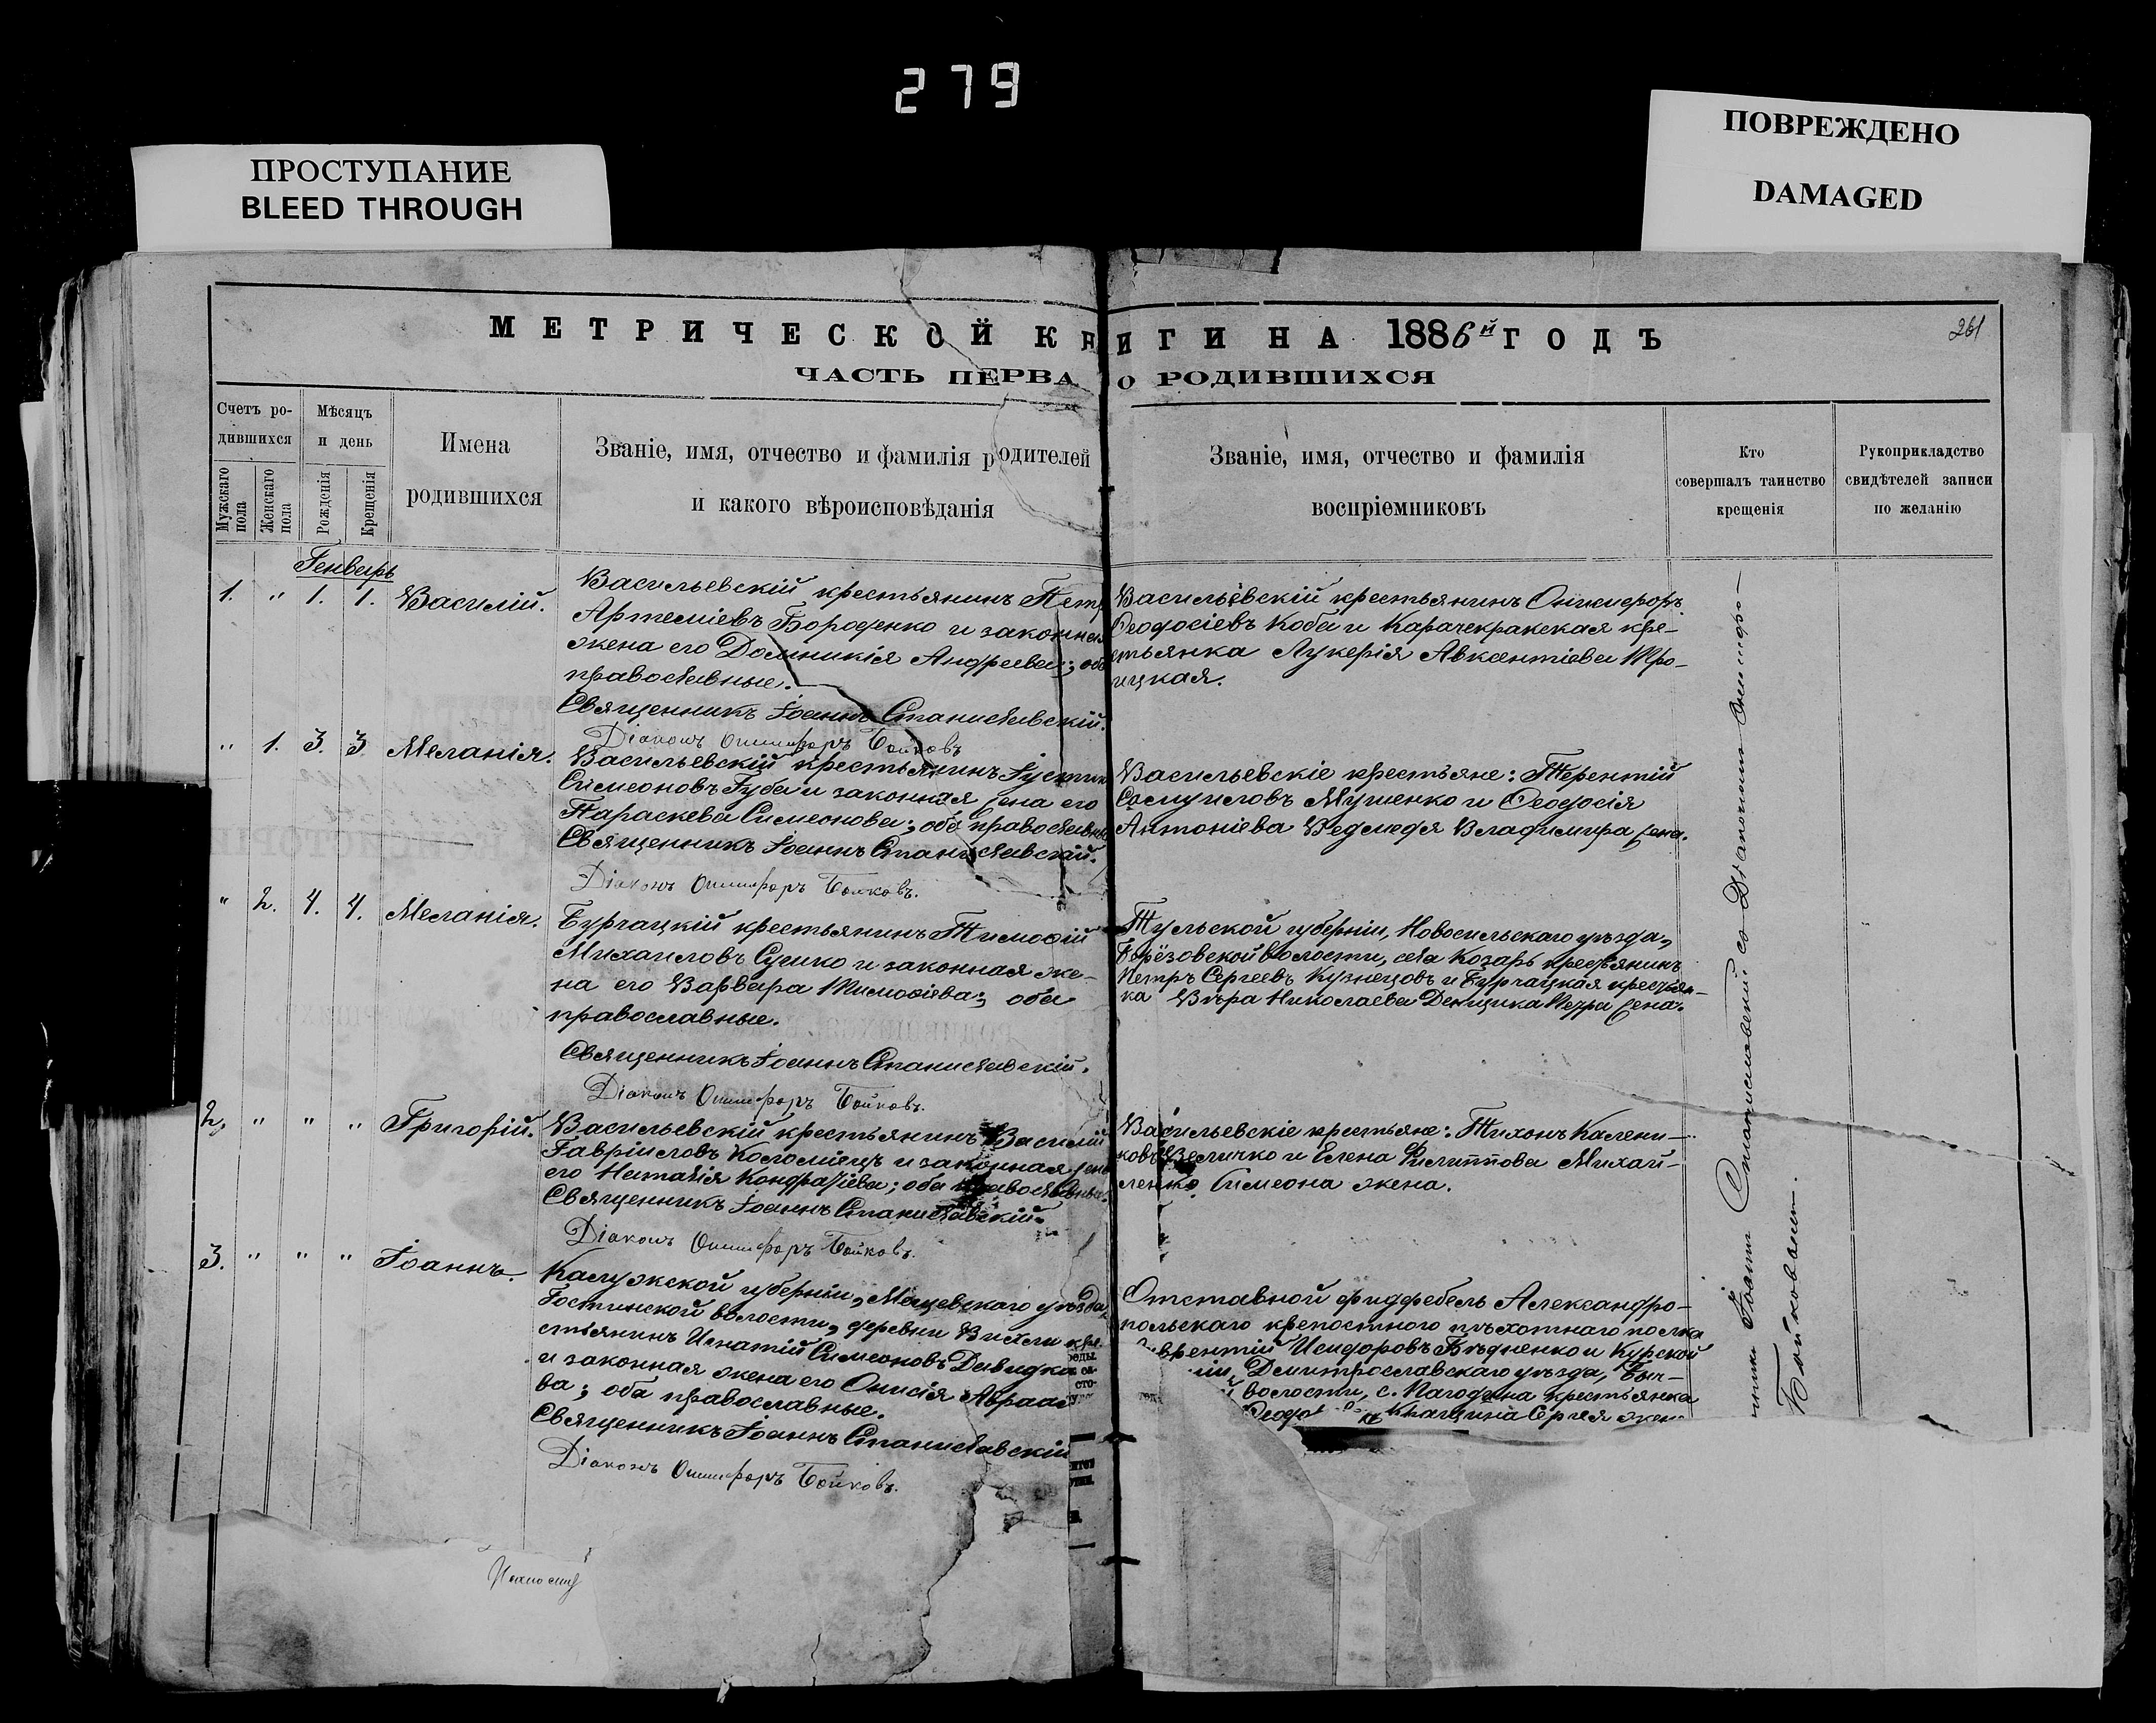 279
ПРОСТУПАНИЕ
BLEED THROUGH
ПОВРЕЖДЕНО
DAMAGED
261
МЕТРИЧЕСКОЙ КНИГИ НА 1886й ГОДЪ
ЧАСТЬ ПЕРВА О РОДИВШИХСЯ
Счетъ ро-
дившихся
Мужскаго пола
Женскаго пола
Мѣсяцъ
и день
Рожденія
Крещенія
Имена
родившихся
Званіе, имя, отчество и фамилія родителей
и какого вѣроисповѣданія
Званіе, имя, отчество и фамилія
воспріемниковъ
Кто
совершалъ таинство
крещенія
Рукоприкладство
свидѣтелей записи
по желанію
Генварь
1. " 1. 1. Василій.
Васильевскій крестьянинъ Петр
Артеміевъ Бороденко и законная
жена его Домникія Андреева; оба
православные.
Священникъ Іоаннъ Станиславскій.
Діаконъ Онисифоръ Бойковъ
Васильевскій крестьянинъ Онисифоръ
Ѳеодосіевъ Коба и Карачекракская кре-
стьянка Лукерія Авксентіева Тро-
ицкая.
" 1. 3. 3. Меланія.
Васильевскій крестьянинъ Іустин
Симеоновъ Губа и законная жена его
Параскева Симеонова; оба православны
Священникъ Іоаннъ Станиславскій.
Діаконъ Онисифоръ Бойковъ.
Васильевскіе крестьяне: Терентій
Самуиловъ Мушенко и Ѳеодосія
Антоніева Ведмедя Владимира жена.
" 2. 4. 4. Меланія.
Бурчацкій крестьянинъ Тимоѳій
Михаиловъ Сушко и законная же-
на его Варвара Тимоѳіева; оба
православные.
Священникъ Іоаннъ Станиславскій.
Діаконъ Онисифоръ Бойковъ.
Тульской губерніи, Новосильскаго уѣзда,
Берёзовской волости, села Козарь крестьянинъ
Петръ Сергеевъ Кузнецовъ и Бурчацкая крестьян-
ка Вѣра Николаева Денщика Петра жена.
2. " " " Григорій.
Васильевскій крестьянинъ Василій
Гавріиловъ Коломіецъ и законная жена
его Наталія Кондратіева; оба православны.
Священникъ Іоаннъ Станиславскій.
Діаконъ Онисифоръ Бойковъ.
Васильевскіе крестьяне: Тихонъ Калени-
ковъ Величко и Елена Филиппова Михай-
ленко Симеона жена.
3. " " " Іоаннъ.
Калужской губерніи, Мещевскаго уѣзда,
Гостинской волости, деревни Вихли кре-
стьянинъ Игнатій Симеоновъ Давидко
и законная жена его Онисія Авраам
ва; оба православные.
Священникъ Іоаннъ Станиславскій
Діаконъ Онисифоръ Бойковъ.
Отставной фидфебель Александро-
польскаго крепостного пѣхотнаго полка
врентій Исидоровъ Бѣдненко и Курской
ніи, Дмитрославскаго уѣзда,
волости, с. Погодина крестьянка
Сергея жена
Іоаннъ Станиславскій со Діакономъ Онисифо-
Бойковымъ.